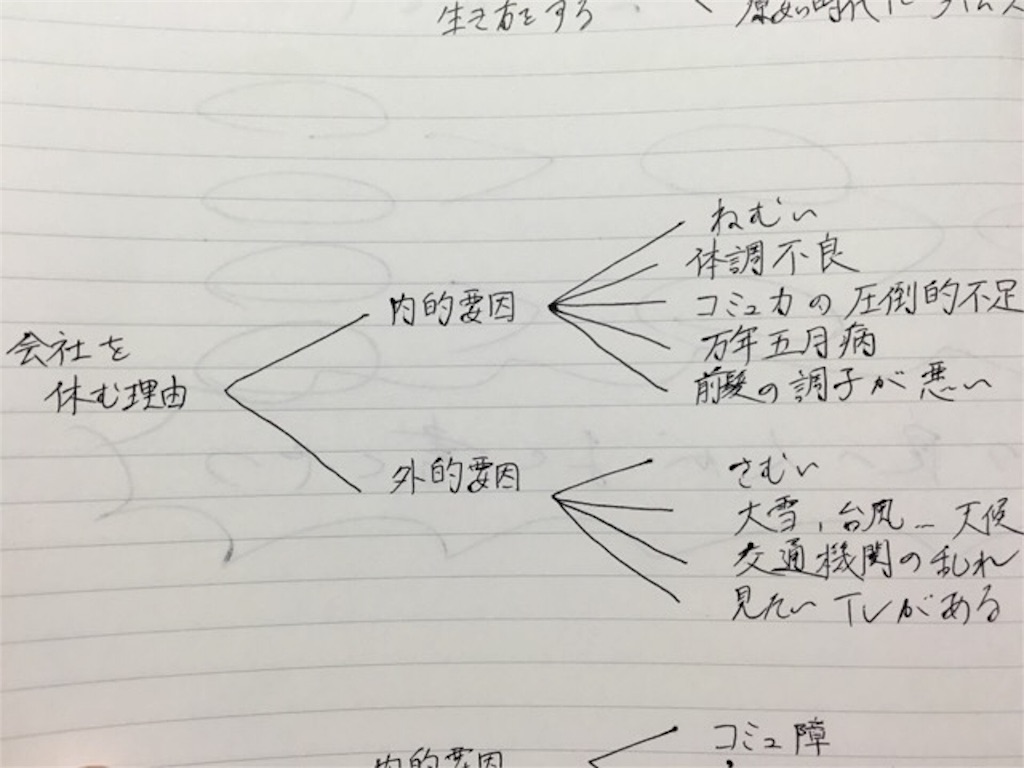 生き方をする
原始時代にタイムス
ねむい
体調不良
コミュ力の圧倒的不足
万年五月病
前髪の調子が悪い
内的要因
会社を
休む理由
外的要因
さむい
大雪、台風…天候
交通機関の乱れ
見たいTVがある
コミュ障
内的要因